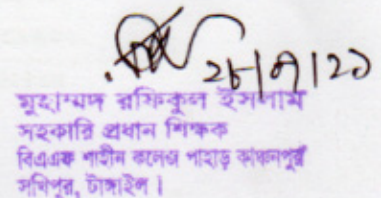 ২৮/৭/২১
মুহাম্মদ রফিকুল ইসলাম
সহকারি প্রধান শিক্ষক
বিএএফ শাহীন কলেজ পাহাড় কাঞ্চনপুর
সখিপুর, টাঙ্গাইল।